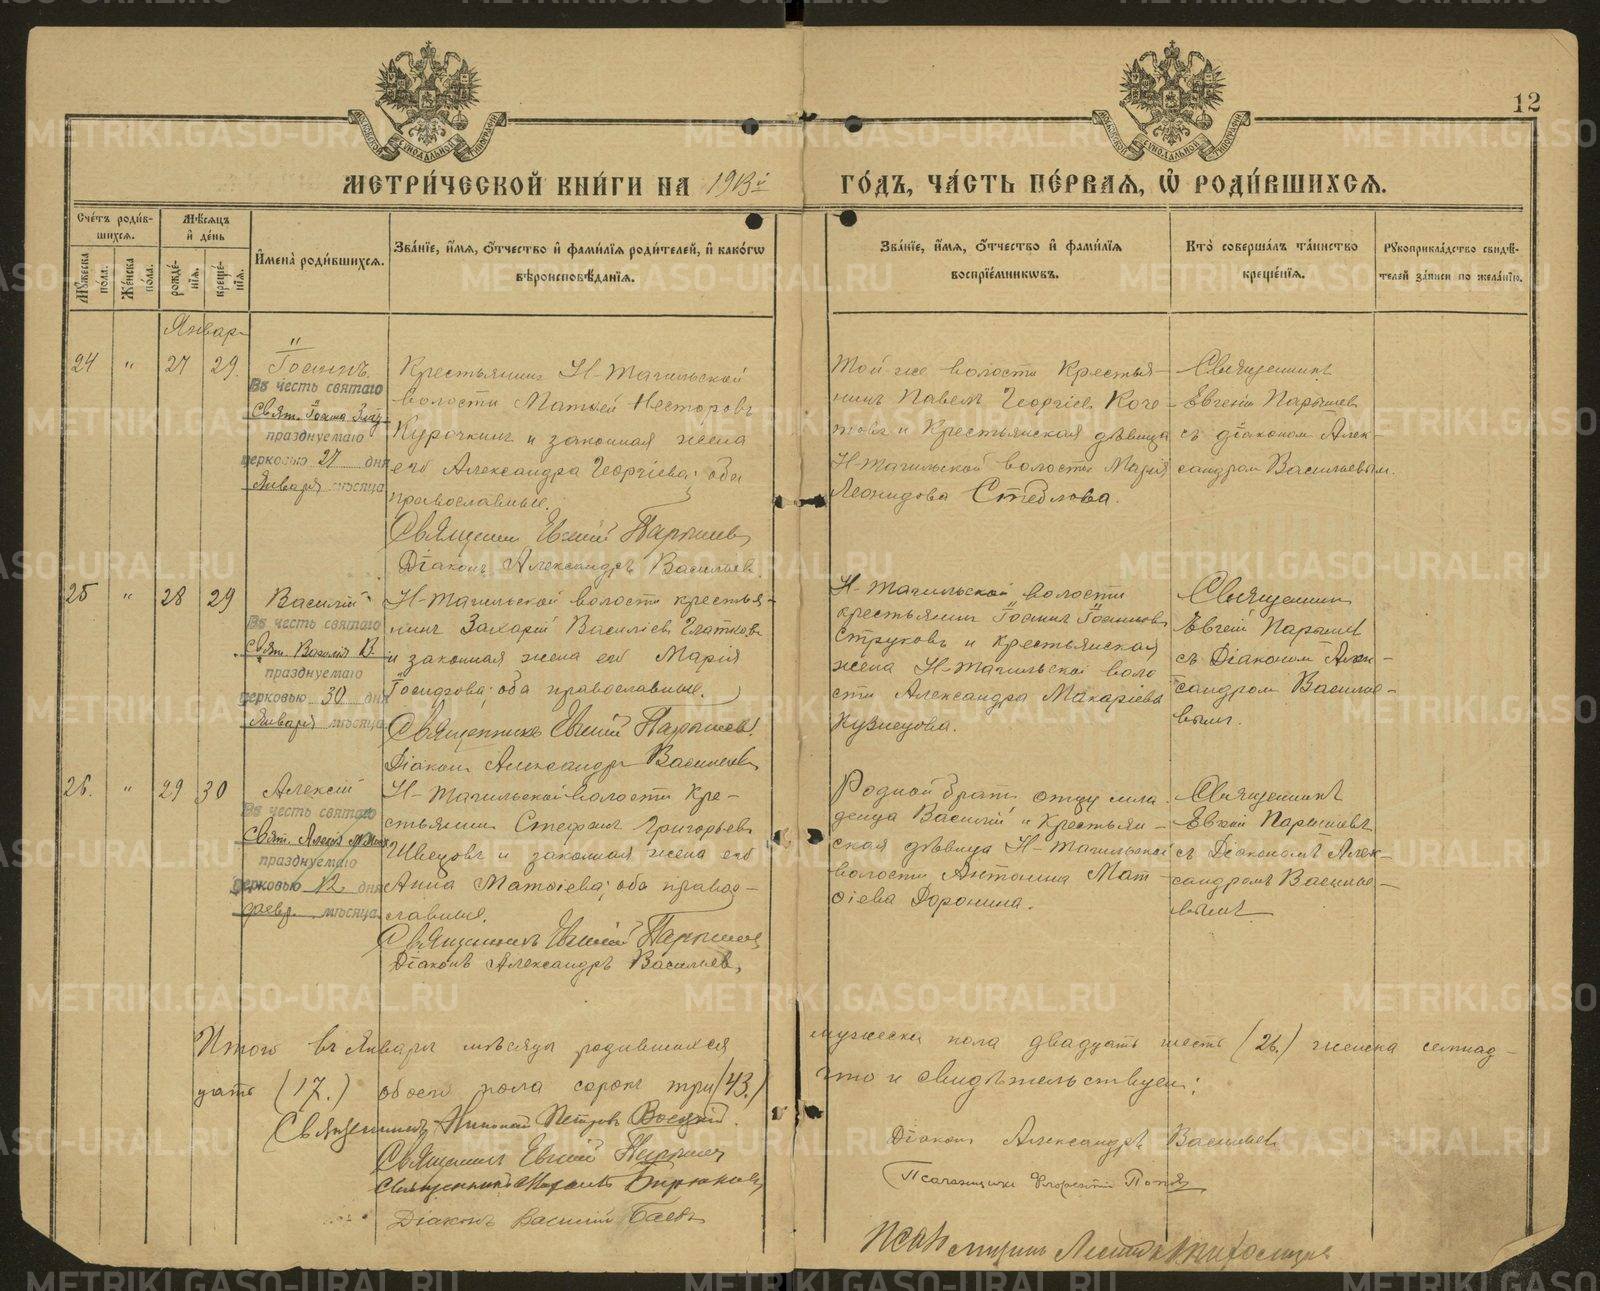 12
МЕТРИ́ЧЕСКОЙ КНИ́ГИ НА 1913й ГО́ДЪ, ЧА́СТЬ ПЕ́РВАЯ, Ѡ РОДИ́ВШИХСЯ.
Сче́тъ роди́вшихся.
Мѣ́сяцъ и҆ де́нь
И҆мена̀ роди́вшихся.
Зва́нїе, и҆́мя, ѻ҆́тчество и҆ фами́лїя роди́телей, и҆ како́гѡ
вѣроисповѣ́данїя.
Зва́нїе, и҆́мя, ѻ҆́тчество и҆ фами́лїя
воспрїе́мникѡвъ.
Кто̀ соверша́лъ та́инство
креще́нїя.
Рꙋкоприкла́дство свидѣ́-
телей за́писи по жела́нїю.
Мꙋ́жеска по́ла.
Же́нска по́ла.
рожде́нїя.
креще́нїя.
Январ
24 " 27 29.
Іоаннъ
Въ честь святаго
Свят. Іоанна Злат
празднуемаго
церковью 27 дня
Января мѣсяца
Крестьянинъ Н-Тагильской
волости Матѳей Несторовъ
Курочкинъ и законная жена
его Александра Георгіева; оба
православные.
Священник Евгеній Парышев
Діаконъ Александръ Васильевъ
Той же волости Крестья-
нинъ Павелъ Георгіев Коче-
товъ и Крестьянская дѣвица
Н-Тагильской волости Марія
Леонидова Стеблова.
Священникъ
Евгеній Парышев
съ діаконом Алек-
сандром Васильевым.
25 " 28 29
Василій
Въ честь святаго
Свят. Василія В.
празднуемаго
церковью 30 дня
Января мѣсяца
Н-Тагильской волости крестья-
нинъ Захарій Василіев Глатков
и законная жена его Марія
Іосифова; оба православные.
Священникъ Евгеній Парышев.
Діаконъ Александръ Васильевъ
Н-Тагильской волости
крестьянинъ Іоаннъ Іоаннов
Струковъ и крестьянская
жена Н-Тагильской воло
сти Александра Макаріева
Кузнецова.
Священник
Евгеній Парышев
съ Діаконом Алек-
сандром Василье-
вымъ.
26. " 29 30
Алексій
Въ честь святаго
Свят. Алексія М. Моск
празднуемаго
церковью 12 дня
февр. мѣсяца.
Н-Тагильской волости Кре-
стьянинъ Стефанъ Григорьев
Швецовъ и законная жена его
Анна Матѳіева; оба право-
славные.
Священникъ Евгеній Парышев
Діаконъ Александръ Васильевъ
Родной брат отцу мла
денца Василій и Крестьян-
ская дѣвица Н-Тагильской
волости Антонина Мат-
ѳіева Доронина.
Священникъ
Евгеній Парышевъ
съ Діакономъ Алек-
сандромъ Василье-
вымъ
Итого въ Январѣ мѣсяцѣ родившихся мужеска пола двадцать шесть (26.) женска семнад-
цать (17.) обоего пола сорокъ три (43.) что и свидѣтельствуем:
Священникъ Николай Петров
Священникъ Евгеній Парышев
Священникъ Бирюков
Діаконъ Василій Баевъ
Діаконъ Александръ Васильевъ
Псаломщикъ Попов